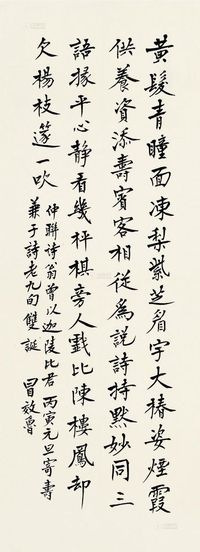 黃髮青瞳面凍梨紫芝眉宇大椿姿煙霞
供養資添壽賓客相從爲說詩持默妙同三
語掾平心靜看幾枰棋旁人戲比陳樓鳳却
欠楊枝篴一吹
仲聯詩翁曾以迦陵比君丙寅元旦寄壽
兼于詩老九旬雙誕 冒效魯